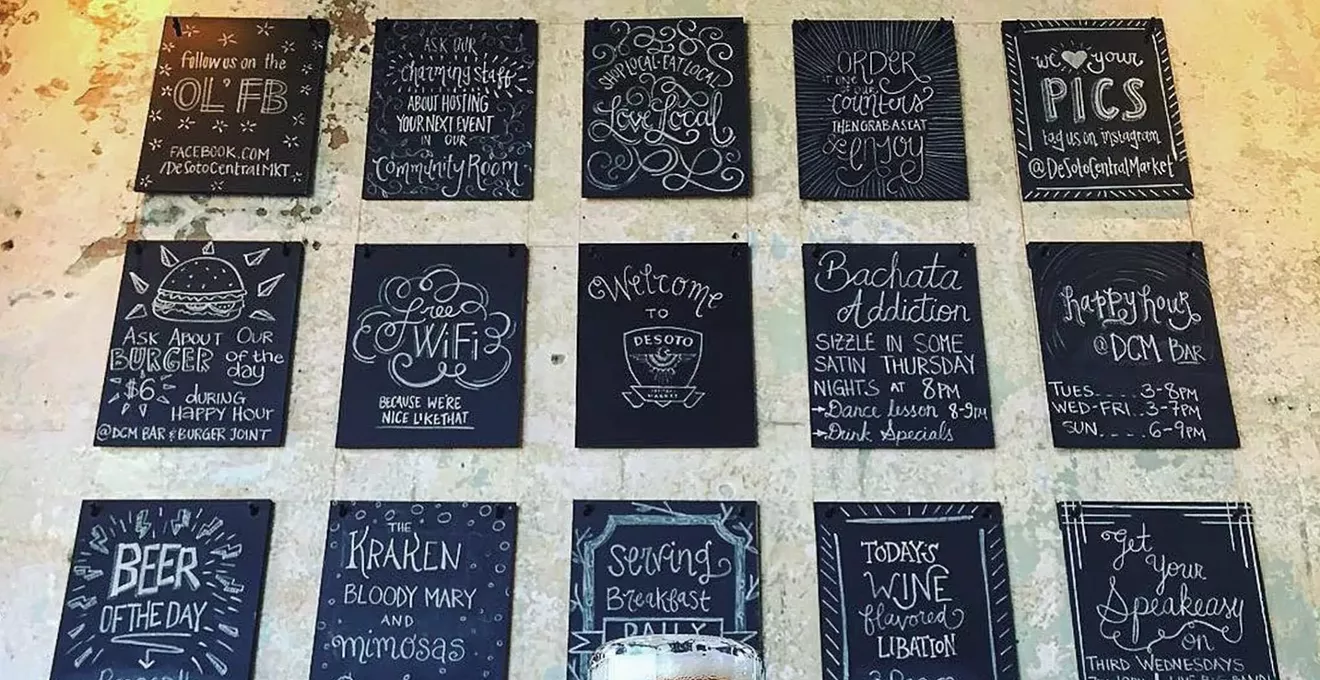 follow us on the
OL' FB
FACEBOOK.COM
/DeSotoCentralMKT
ASK OUR
charming staff
ABOUT HOSTING
YOUR NEXT EVENT
IN OUR
Community Room
SHOP LOCAL·EAT LOCAL
Love Local
ORDER
AT ONE
OF OUR
counters
THEN GRAB A SEAT
& enjoy
we ♥ your
PICS
tag us on instagram
@DeSotoCentralMarket
ASK ABOUT OUR
BURGER of the
day
$6 during
HAPPY HOUR
@DCM BAR & BURGER JOINT
free
WiFi
BECAUSE WE'RE
NICE LIKE THAT
Welcome
TO
DESOTO
CENTRAL
MARKET
Bachata
Addiction
SIZZLE IN SOME
SATIN THURSDAY
NIGHTS AT 8PM
→Dance lesson 8-9PM
→Drink Specials
happy hour
@DCM BAR
TUES.......3-8PM
WED-FRI..3-7PM
SUN......6-9PM
BEER
OF THE DAY
THE
KRAKEN
BLOODY MARY
AND
mimosas
Serving
Breakfast
DAILY
TODAY'S
WINE
flavored
LIBATION
Get
Your
Speakeasy
on
THIRD WEDNESDAYS